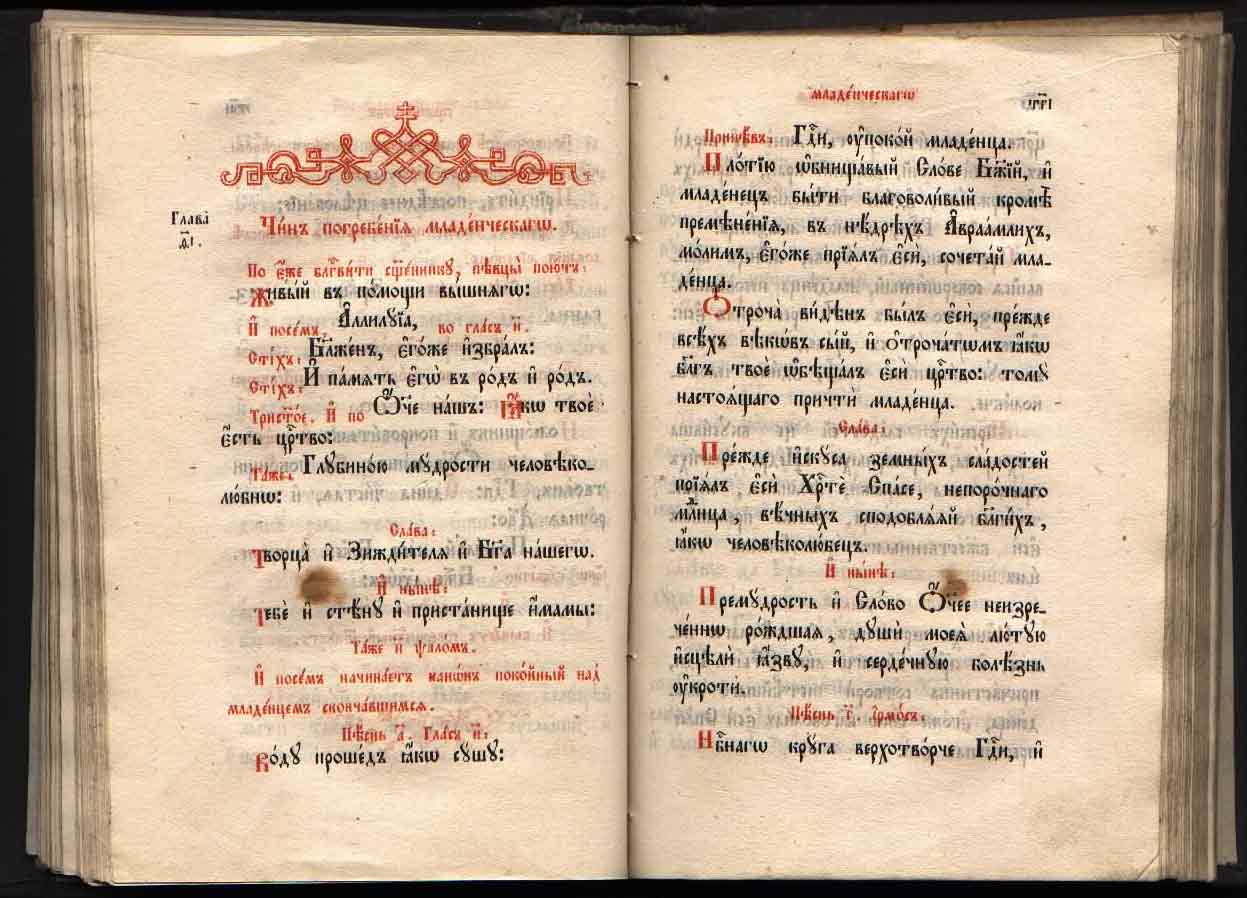 Глава̀
ѳ҃і.
Чи́нъ погребе́нїѧ младе́нческагѡ.
По є҆́же блг҃ви́ти сщ҃е́ннику, пѣвцы̀ пою́тъ:
Живы́й въ по́мощи вы́шнѧгѡ:
И҆ посе́мъ, А҆ллилу́їа, во гла́съ и҃.
Сті́хъ: Бл҃же́нъ, є҆го́же и҆збра́лъ:
Сті́хъ: И҆ па́мѧть є҆гѡ̀ въ ро́дъ и҆ ро́дъ.
Трист҃о́е. И҆ по Ѻ҆́ч҃е на́шъ: Ꙗ҆́кѡ твоѐ
є҆́сть цр҃тво:
Та́же. Глꙋбино́ю мꙋ́дрости человѣко-
лю́бнѡ:
Сла́ва:
Творца̀ и҆ Зижди́телѧ и҆ Бг҃а на́шегѡ.
И҆ ны́нѣ:
Тебѐ и҆ стѣ́нꙋ и҆ приста́нище и҆́мамы:
Та́же н҃ ѱало́мъ.
И҆ посе́мъ начина́етъ канѡ́нъ поко́йный над̾
младе́нцемъ сконча́вшимсѧ.
Пѣ́снь а҃. Гла́съ и҃:
Во́дꙋ проше́дъ ꙗ҆́кѡ сꙋ́шꙋ:
младе́нческагѡ
Припѣ́въ: Гд҃и, оу҆поко́й младе́нца.
Пло́тїю ѡ҆бнища́вый Сло́ве Бж҃їй, и҆
младе́нецъ бы́ти благоволи́вый кромѣ̀
премѣне́нїѧ, въ нѣ́дрѣхъ А҆враа́млихъ,
мо́лимъ, є҆го́же прїѧ́лъ є҆сѝ, сочета́й мла-
де́нца.
Ѻ҆троча̀ ви́дѣнъ бы́лъ є҆сѝ, пре́жде
всѣ́хъ вѣкѡ́въ сы́й, и҆ ѻ҆троча́тѡмъ ꙗ҆́кѡ
бл҃гъ твоѐ ѡ҆бѣща́лъ є҆сѝ цр҃тво: томꙋ̀
настоѧ́щаго причтѝ младе́нца.
Сла́ва:
Пре́жде и҆скꙋ́са земны́хъ сла́достей
прїѧ́лъ є҆сѝ Хр҃тѐ Спа́се, непоро́чнаго
мл҃нца, вѣ́чныхъ сподоблѧ́ѧй бл҃ги́хъ,
ꙗ҆́кѡ человѣколю́бецъ.
И҆ ны́нѣ:
Премꙋ́дрость и҆ Сло́во Ѻ҆́ч҃ее неизре-
че́ннѡ ро́ждшаѧ, дꙋшѝ моеѧ̀ лю́тꙋю
и҆сцѣлѝ ꙗ҆́звꙋ, и҆ серде́чнꙋю болѣ́знь
оу҆кротѝ.
Пѣ́снь г҃. І҆рмо́съ:
Нб҃нагѡ крꙋ́га верхотво́рче Гд҃и, и҆